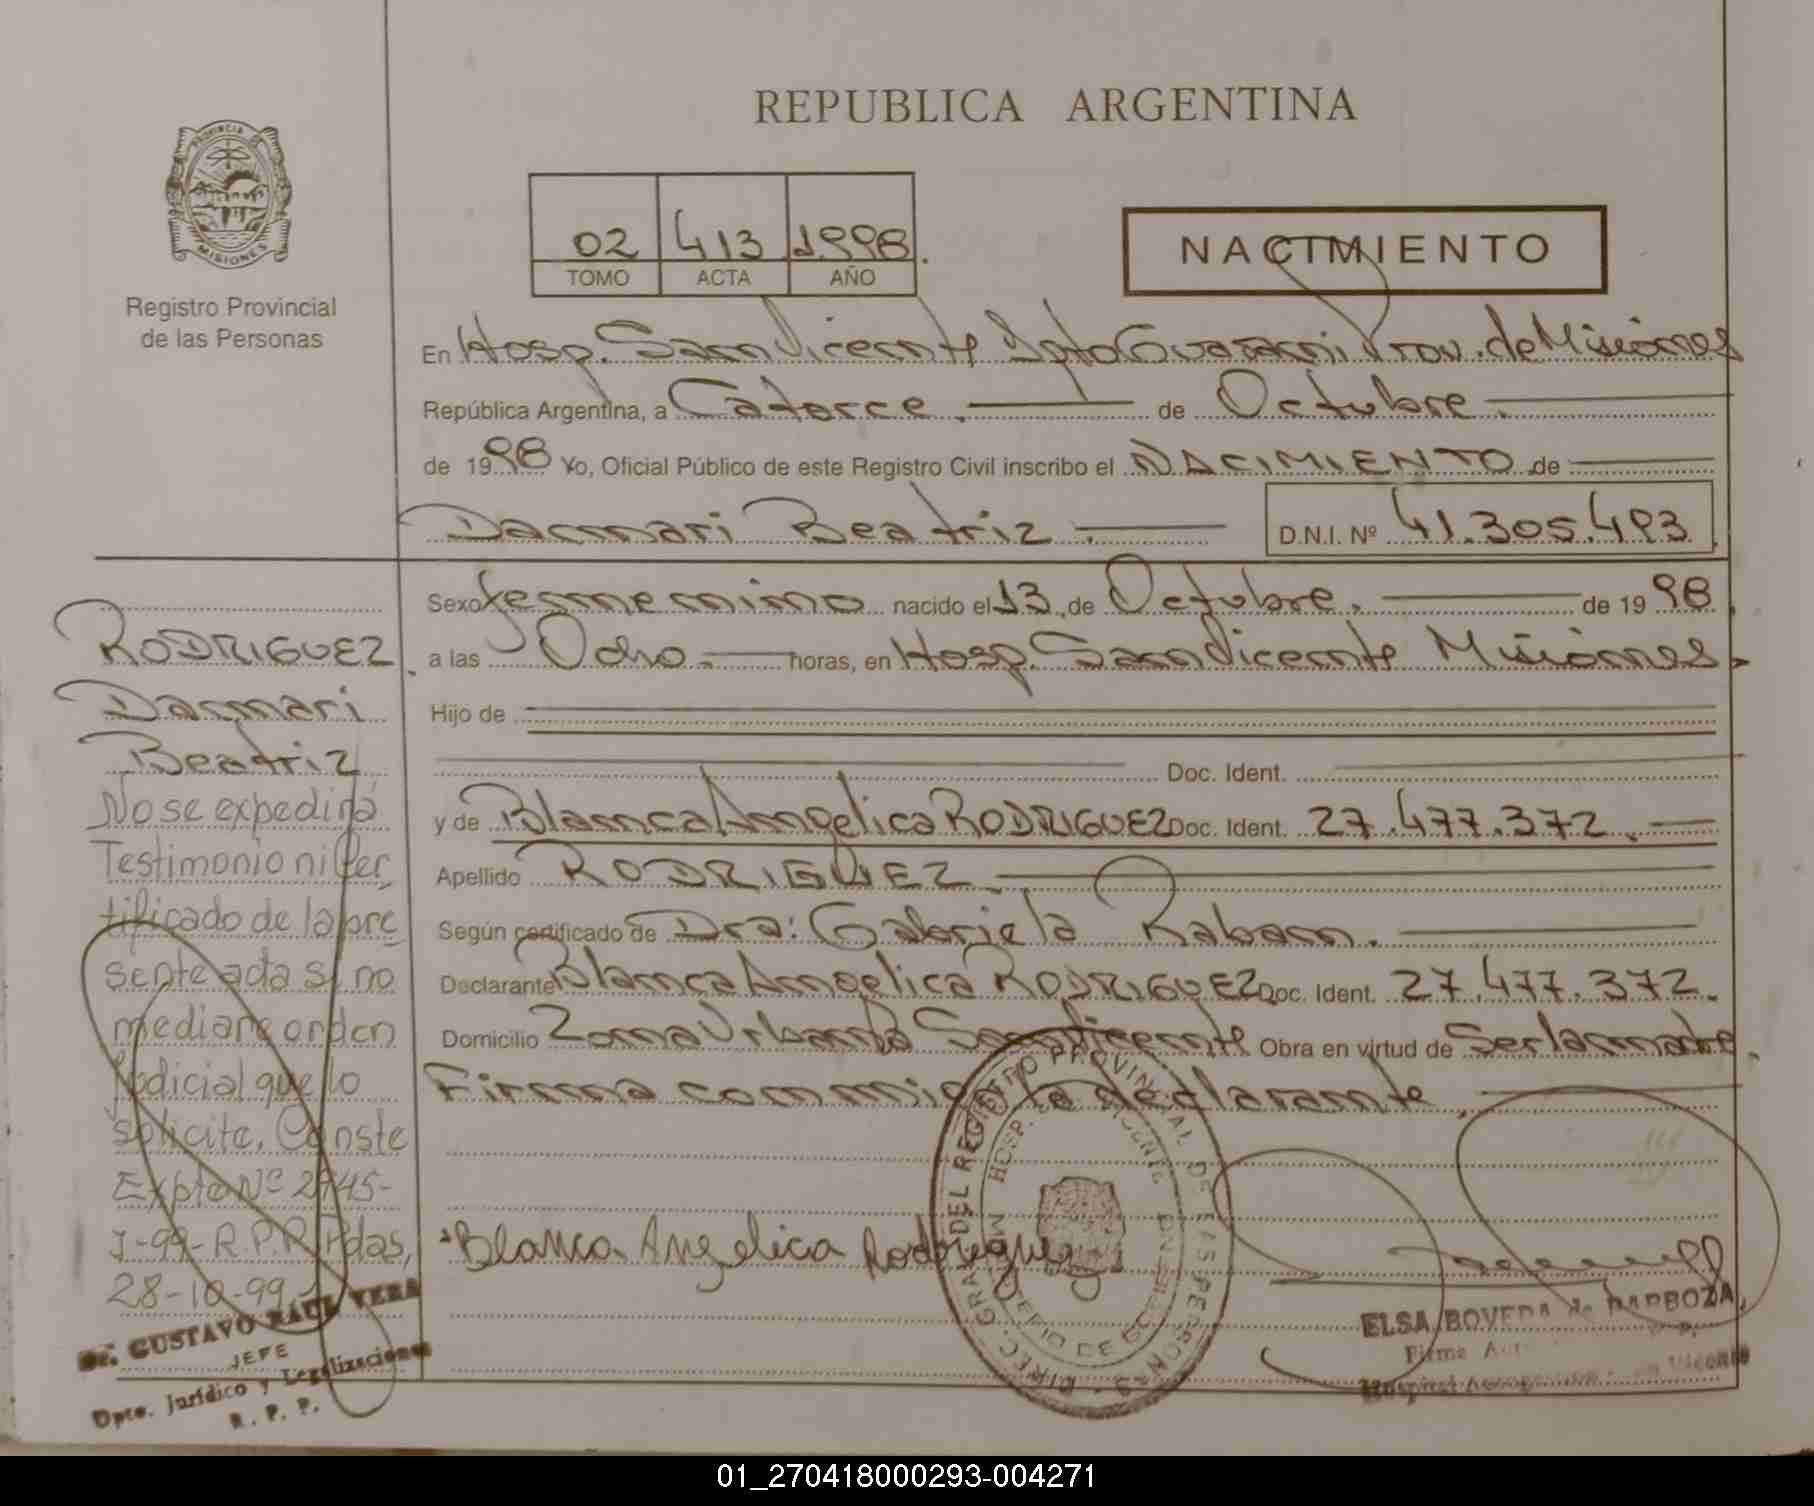 REPUBLICA ARGENTINA
PROVINCIA DE
MISIONES
Registro Provincial
de las Personas
02 413 1998.
TOMO ACTA AÑO
NACIMIENTO
En Hosp. San Vicente Dpto Guarani Prov. de Misiones
República Argentina, a Catorce. de Octubre.
de 1998 Yo, Oficial Público de este Registro Civil inscribo el NACIMIENTO de
Damari Beatriz. D.N.I. Nº 41.305.493.
Sexo femenino nacido el 13 de Octubre. de 1998.
a las Ocho. horas, en Hosp. San Vicente Misiones.
Hijo de
Doc. Ident.
y de Blanca Angelica RODRIGUEZ Doc. Ident. 27.477.372.
Apellido RODRIGUEZ.
Según certificado de Dra: Gabriela Raban.
Declarante Blanca Angelica RODRIGUEZ Doc. Ident. 27.477.372.
Domicilio Zona Urbana San Vicente Obra en virtud de Ser la madre.
Firma conmigo la declarante.
RODRIGUEZ.
Damari
Beatriz
No se expedirá
Testimonio ni Cer
tificado de la pre
sente acta si no
mediare orden
Judicial que lo
solicite. Conste
Expte Nº 2945-
J-99-R.P.P. Pdas,
28-10-99.
Dr. GUSTAVO RAUL VERA
JEFE
Dpto. Jurídico y Legalizaciones
R. P. P.
Blanca Angelica Rodriguez
DIREC. GRAL. DEL REGISTRO PROVINCIAL DE LAS PERSONAS
ELSA BOVEDA de BARBOZA
Firma
Hospital
01_270418000293-004271